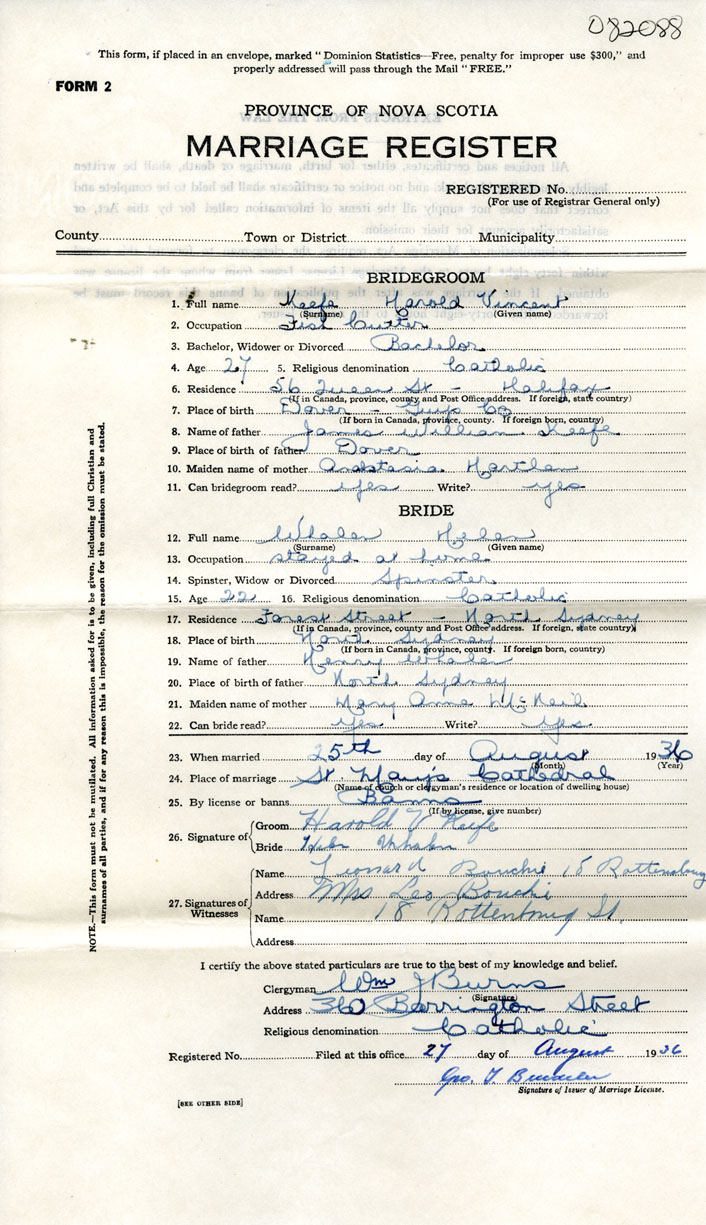 082088
This form, if placed in an envelope, marked "Dominion Statistics—Free, penalty for improper use $300," and
properly addressed will pass through the Mail "FREE."
FORM 2
PROVINCE OF NOVA SCOTIA
MARRIAGE REGISTER
REGISTERED No.
(For use of Registrar General only)
County Town or District Municipality
BRIDEGROOM
1. Full name Keefe Harold Vincent
(Surname) (Given name)
2. Occupation Fish Cutter
3. Bachelor, Widower or Divorced Bachelor
4. Age 27 5. Religious denomination Catholic
6. Residence 56 Queen St - Halifax
(If in Canada, province, county and Post Office address. If foreign, state country)
7. Place of birth Dover - Guys Co
(If born in Canada, province, county. If foreign born, country)
8. Name of father James William Keefe
9. Place of birth of father Dover
10. Maiden name of mother Anastasia Hartlen
11. Can bridegroom read? yes Write? yes
BRIDE
12. Full name Whalen Helen
(Surname) (Given name)
13. Occupation stayed at home
14. Spinster, Widow or Divorced Spinster
15. Age 22 16. Religious denomination Catholic
17. Residence Forest Street - North Sydney
(If in Canada, province, county and Post Office address. If foreign, state country)
18. Place of birth North Sydney
(If born in Canada, province, county. If foreign born, country)
19. Name of father Henry Whalen
20. Place of birth of father North Sydney
21. Maiden name of mother Mary Anne McNeil
22. Can bride read? Yes Write? yes
23. When married 25th day of August 1936
(Month) (Year)
24. Place of marriage St. Mary's Cathedral
(Name of church or clergyman's residence or location of dwelling house)
25. By license or banns Banns
(If by license, give number)
26. Signature of Groom Harold V Keefe
Bride Helen Whalen
27. Signatures of Witnesses
Name Leonard Bouchie 18 Rottenburg
Address Mrs Leo Bouchi
Name 18 Rottenburg St.
Address
NOTE.—This form must not be mutilated. All information asked for is to be given, including full Christian and
surnames of all parties, and if for any reason this is impossible, the reason for the omission must be stated.
I certify the above stated particulars are true to the best of my knowledge and belief.
Clergyman Wm J Burns
(Signature)
Address 360 Barrington Street
Religious denomination Catholic
Registered No. Filed at this office 27 day of August 1936
Geo. T
Signature of Issuer of Marriage License.
[SEE OTHER SIDE]